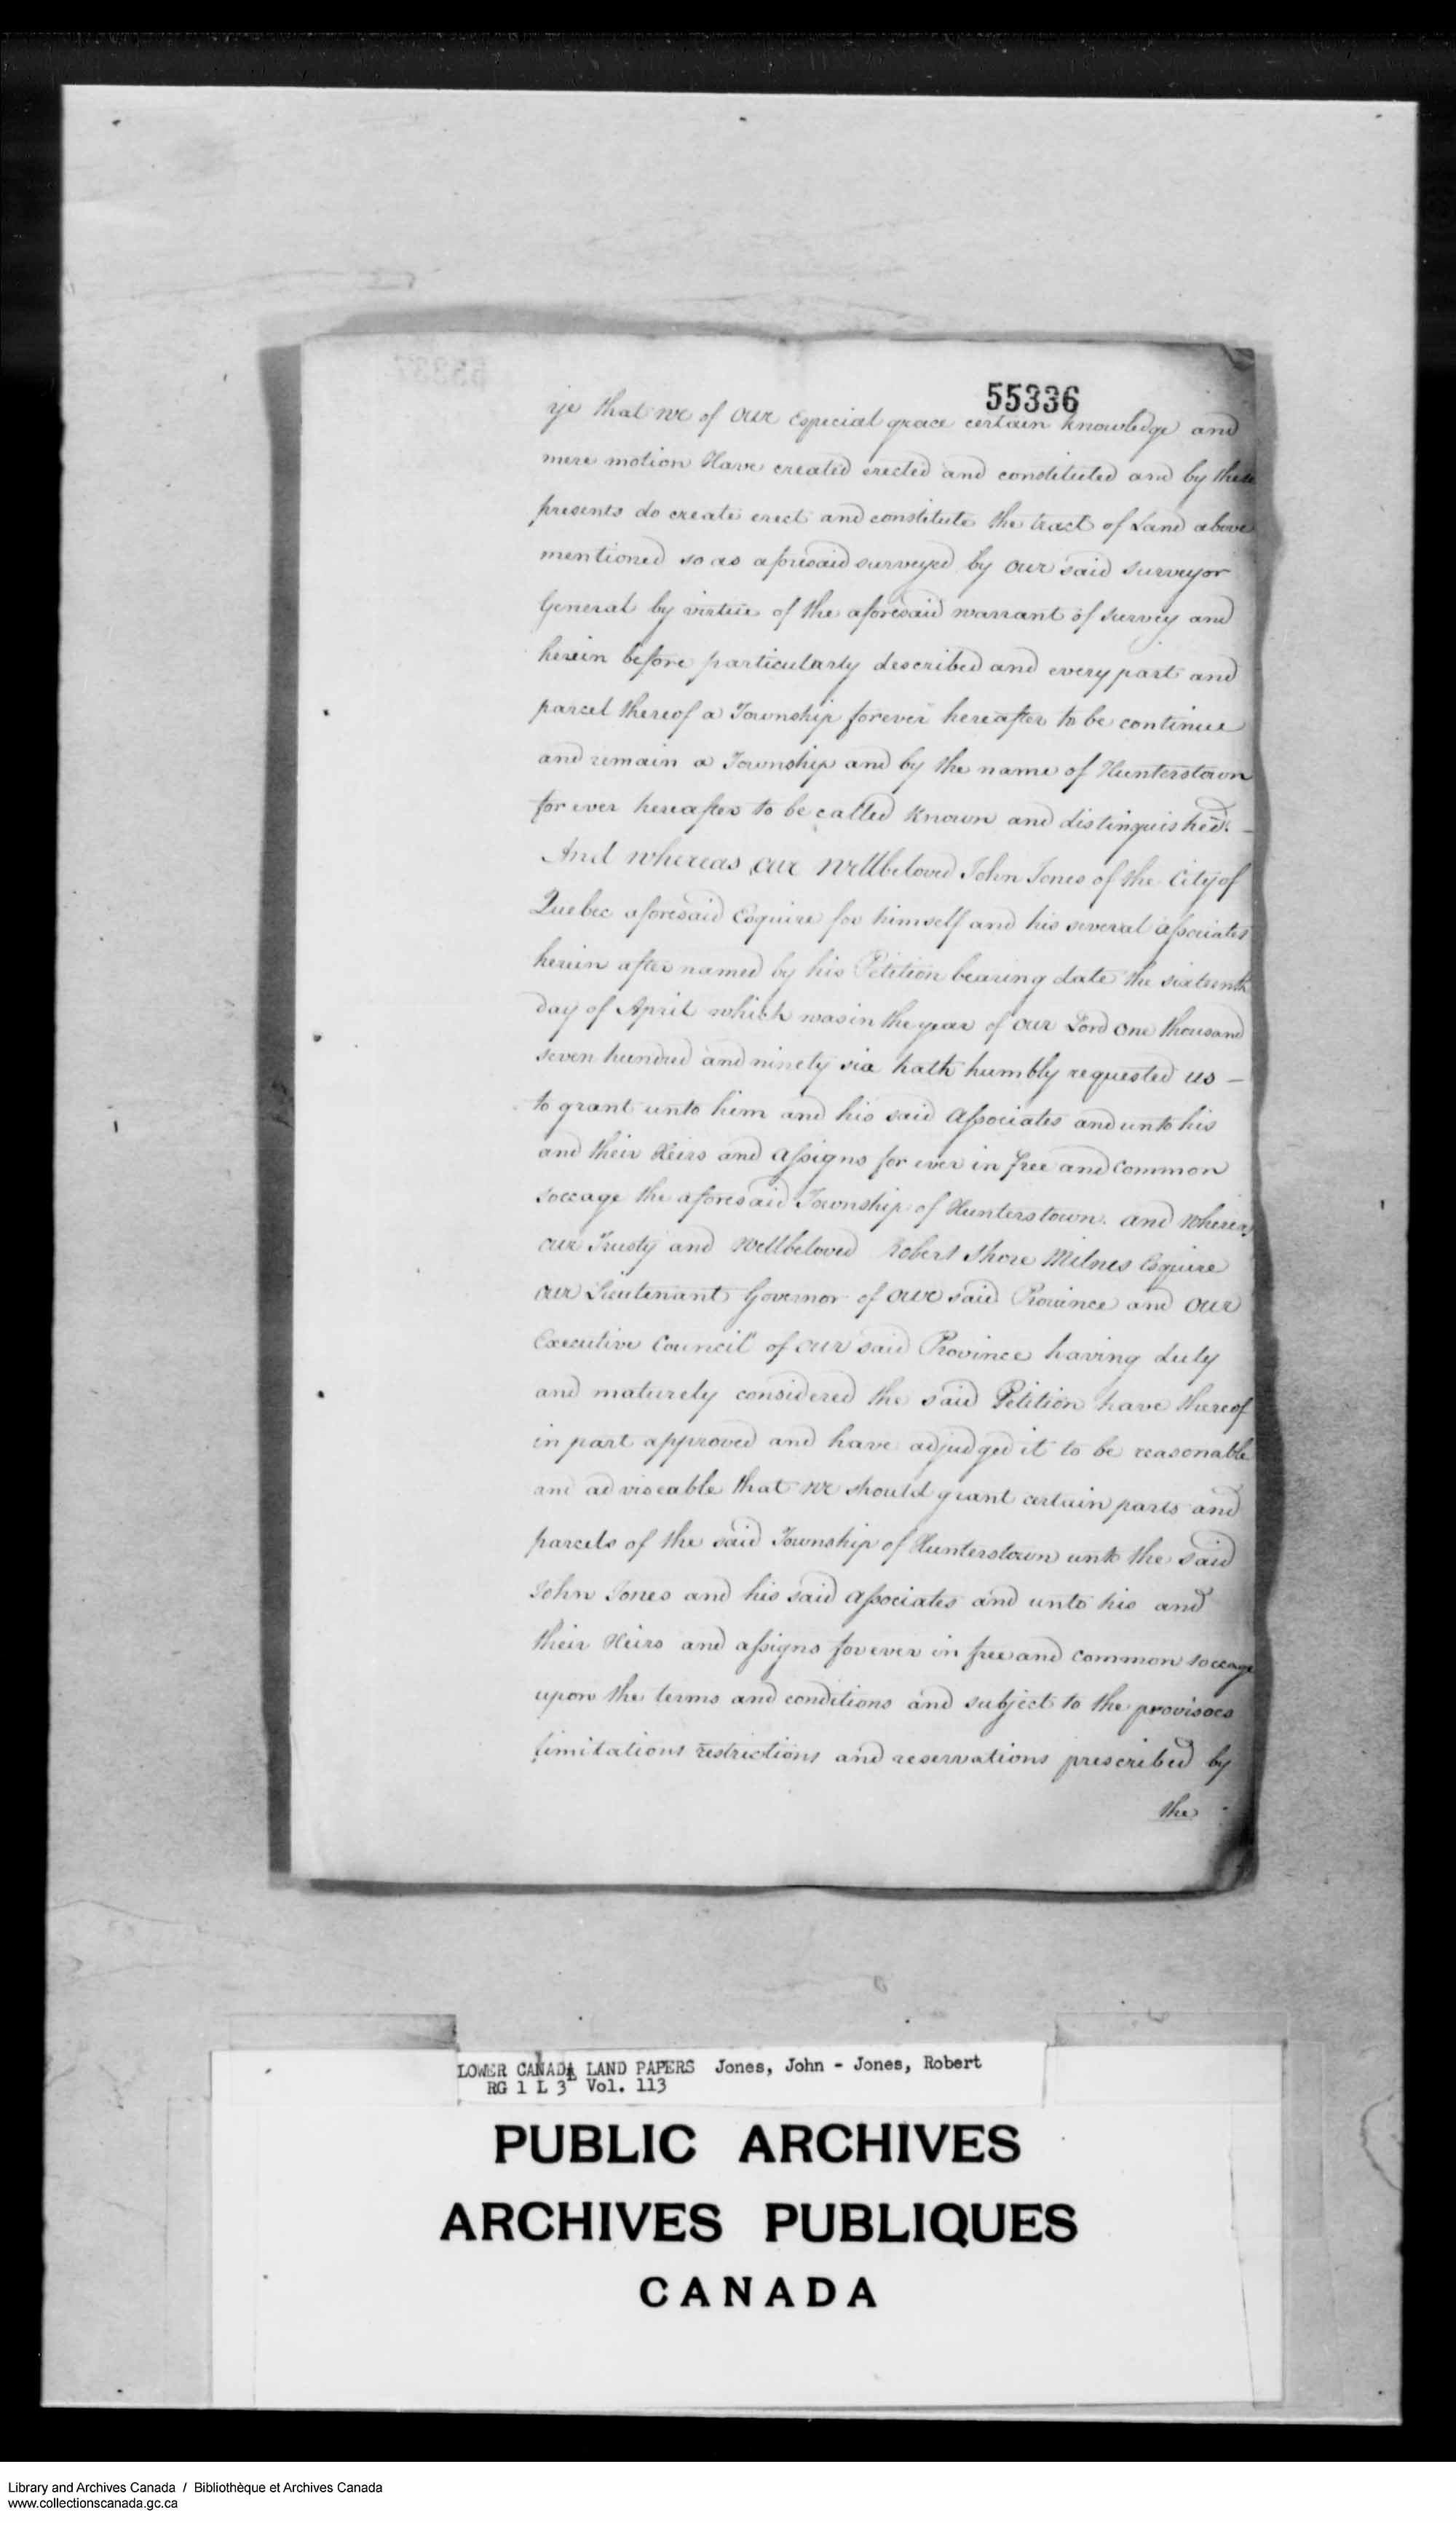 55336
ye that we of our Especial grace certain knowledge and
mere motion Have created erected and constituted and by these
presents do create erect and constitute the tract of Land above
mentioned so as aforesaid surveyed by our said surveyor
General by virtue of the aforesaid warrant of survey and
herein before particularly described and every part and
parcel thereof a Township forever hereafter to be continue
and remain a Township and by the name of Hunterstown
for ever hereafter to be called known and distinguished. —
And whereas our Wellbeloved John Jones of the City of
Quebec aforesaid Esquire for himself and his several associates
herein after named by his Petition bearing date the sixteenth
day of April which was in the year of our Lord One thousand
seven hundred and ninety six hath humbly requested us —
to grant unto him and his said Associates and unto his
and their Heirs and Assigns for ever in free and common
soccage the aforesaid Township of Hunterstown. and whereas
our Trusty and Wellbeloved Robert Shore Milnes Esquire
our Lieutenant Governor of our said Province and our
Executive Council of our said Province having duly
and maturely considered the said Petition have thereof
in part approved and have adjudged it to be reasonable
and adviseable that we should grant certain parts and
parcels of the said Township of Hunterstown unto the said
John Jones and his said Associates and unto his and
their Heirs and assigns forever in free and common soccage
upon the terms and conditions and subject to the provisoes
limitations restrictions and reservations prescribed by
the
LOWER CANADA LAND PAPERS Jones, John - Jones, Robert
RG 1 L 3L Vol. 113
PUBLIC ARCHIVES
ARCHIVES PUBLIQUES
CANADA
Library and Archives Canada / Bibliothèque et Archives Canada
www.collectionscanada.gc.ca